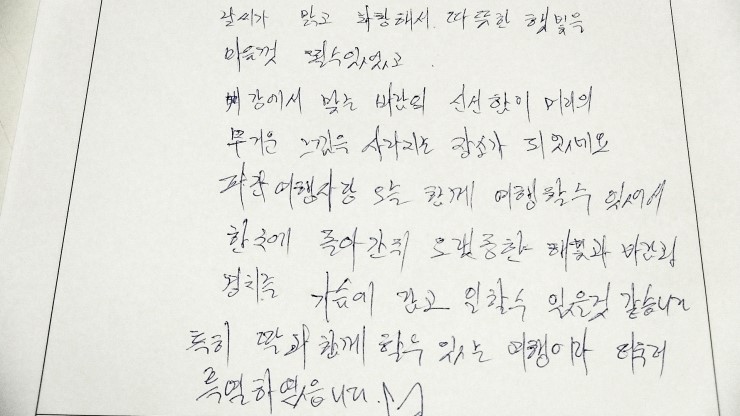 날씨가 맑고 화창해서 따뜻한 햇빛을
마음껏 쬘수있었고.
강에서 맞는 바람의 신선함이 머리의
무거운 느낌을 사라지는 장소가 되었네요
파란여행사랑 오늘 함께 여행할수 있어서
한국에 돌아간뒤 오랫동안 햇빛과 바람의
경치를 가슴에 갖고 일할수 있을것 같습니다
특히 딸과 함께 할수 있는 여행이라 더욱더
특별하였습니다.